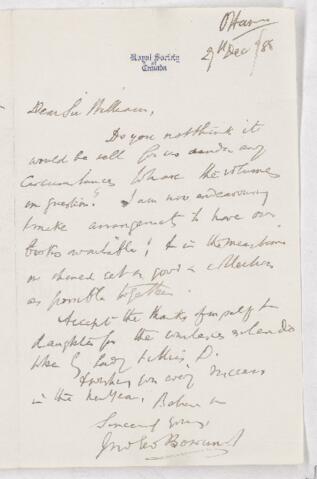 Ottawa
Royal Society
of Canada
Dec /88
Dear Sir William,
Do you not think it
would be well for us under any
circumstances to have the volumes
in question? I am now endeavouring
to make arrangements to have our
books available & in the meantime
we should get as good a collection
as possible together.
Accept the thanks of myself &
daughter for the
by Lady & Miss D.
Wishing you every success
in the New Year, Believe me
Sincerely yours,
Jno Geo Bourinot